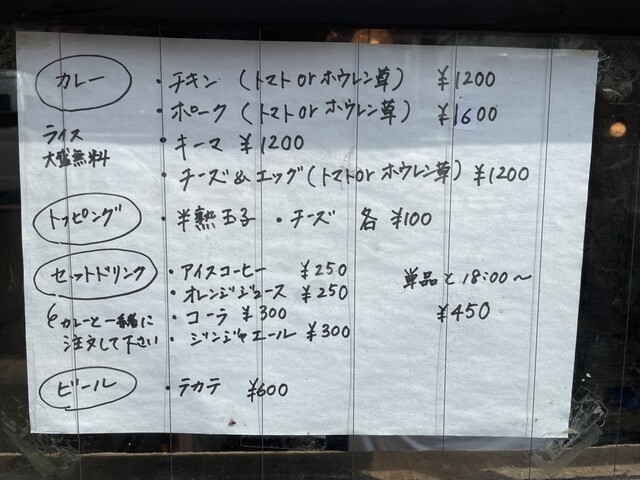 カレー ・チキン (トマト or ホウレン草) ¥1200
・ポーク (トマト or ホウレン草) ¥1600
ライス
大盛無料
・キーマ ¥1200
・チーズ&エッグ(トマト or ホウレン草) ¥1200
トッピング ・半熟玉子 ・チーズ 各 ¥100
セットドリンク ・アイスコーヒー ¥250
・オレンジジュース ¥250
単品と18:00〜
¥450
カレーと一緒に
注文して下さい
・コーラ ¥300
・ジンジャエール ¥300
ビール ・テカテ ¥600